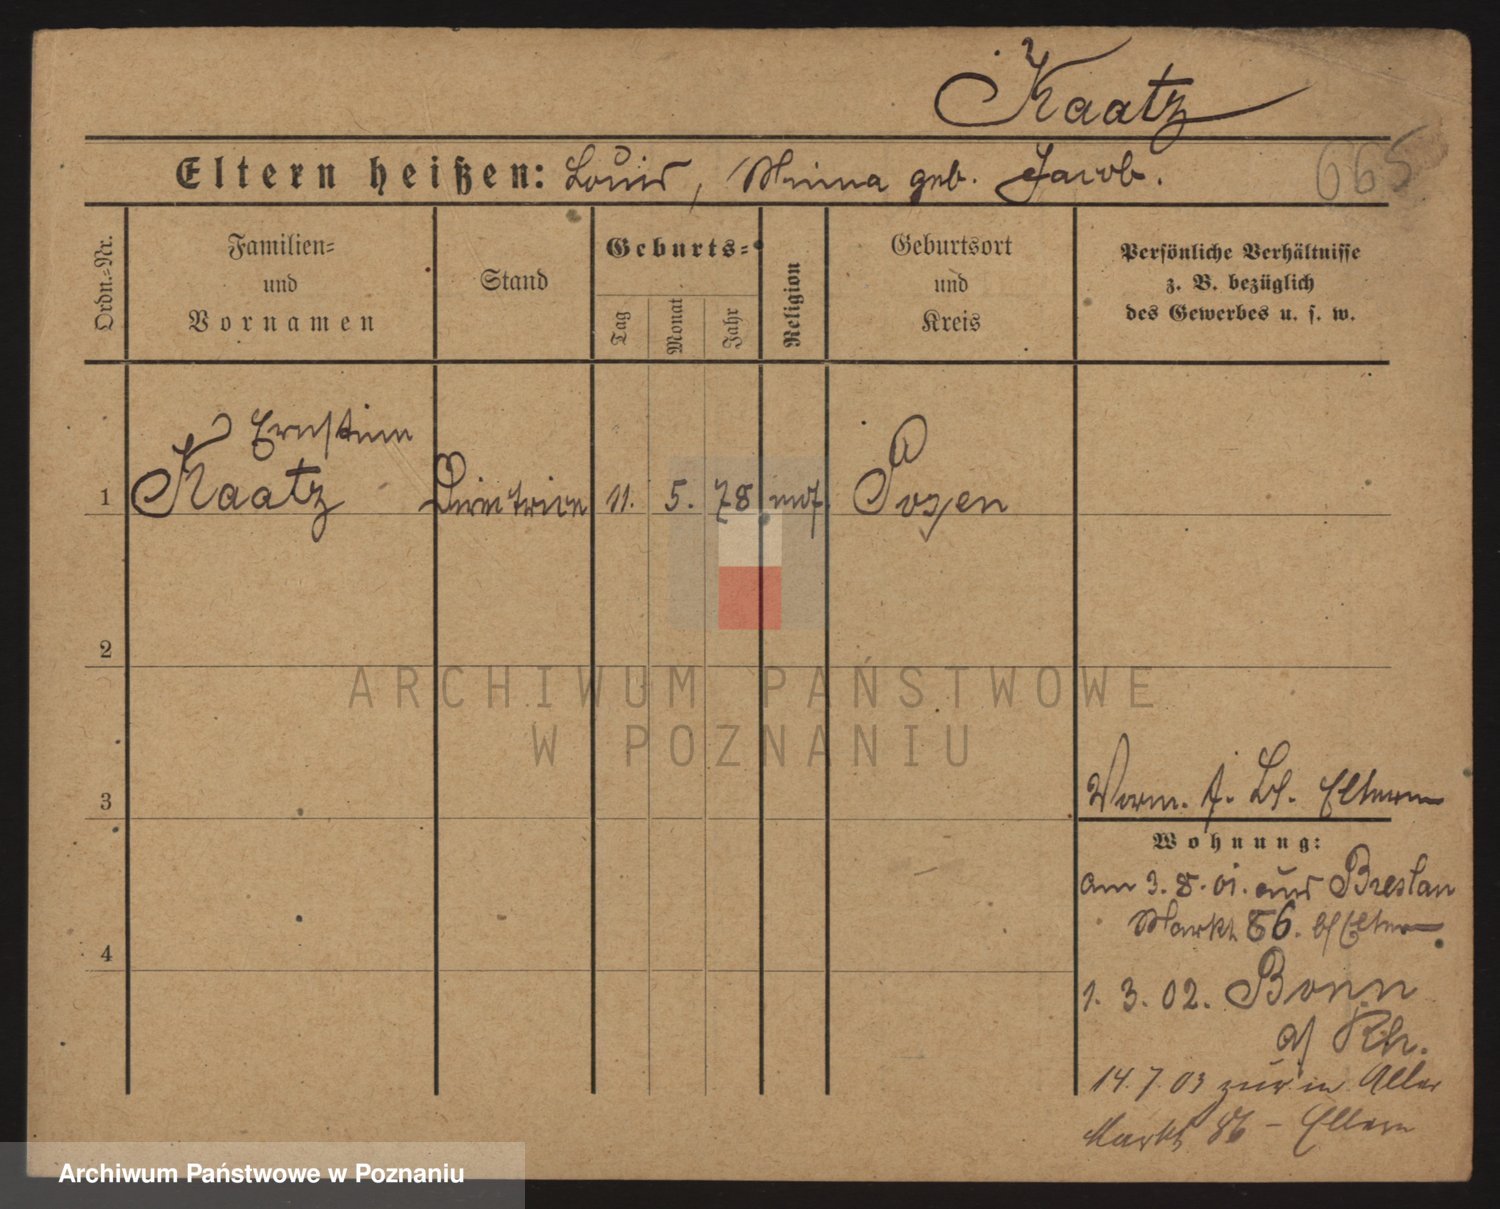 Kaatz
Eltern heißen: Louis, Minna geb. Jacob.
665
Ordn.-Nr.
Familien-
und
Vornamen
Stand
Geburts-
Tag
Monat
Jahr
Religion
Geburtsort
und
Kreis
Persönliche Verhältnisse
z. B. bezüglich
des Gewerbes u. s. w.
Ernstine
1 Kaatz Directrice 11. 5. 78 mos. Posen
2
ARCHIWUM PAŃSTWOWE
W POZNANIU
3
Verm. f. Eltern
Wohnung:
am 3.8.01. aus Breslau
Markt 86. b/ Eltern
4
1. 3. 02. Bonn
a/ Rh.
14.7.03 zur. in Alter
Markt 86 - Eltern
Archiwum Państwowe w Poznaniu